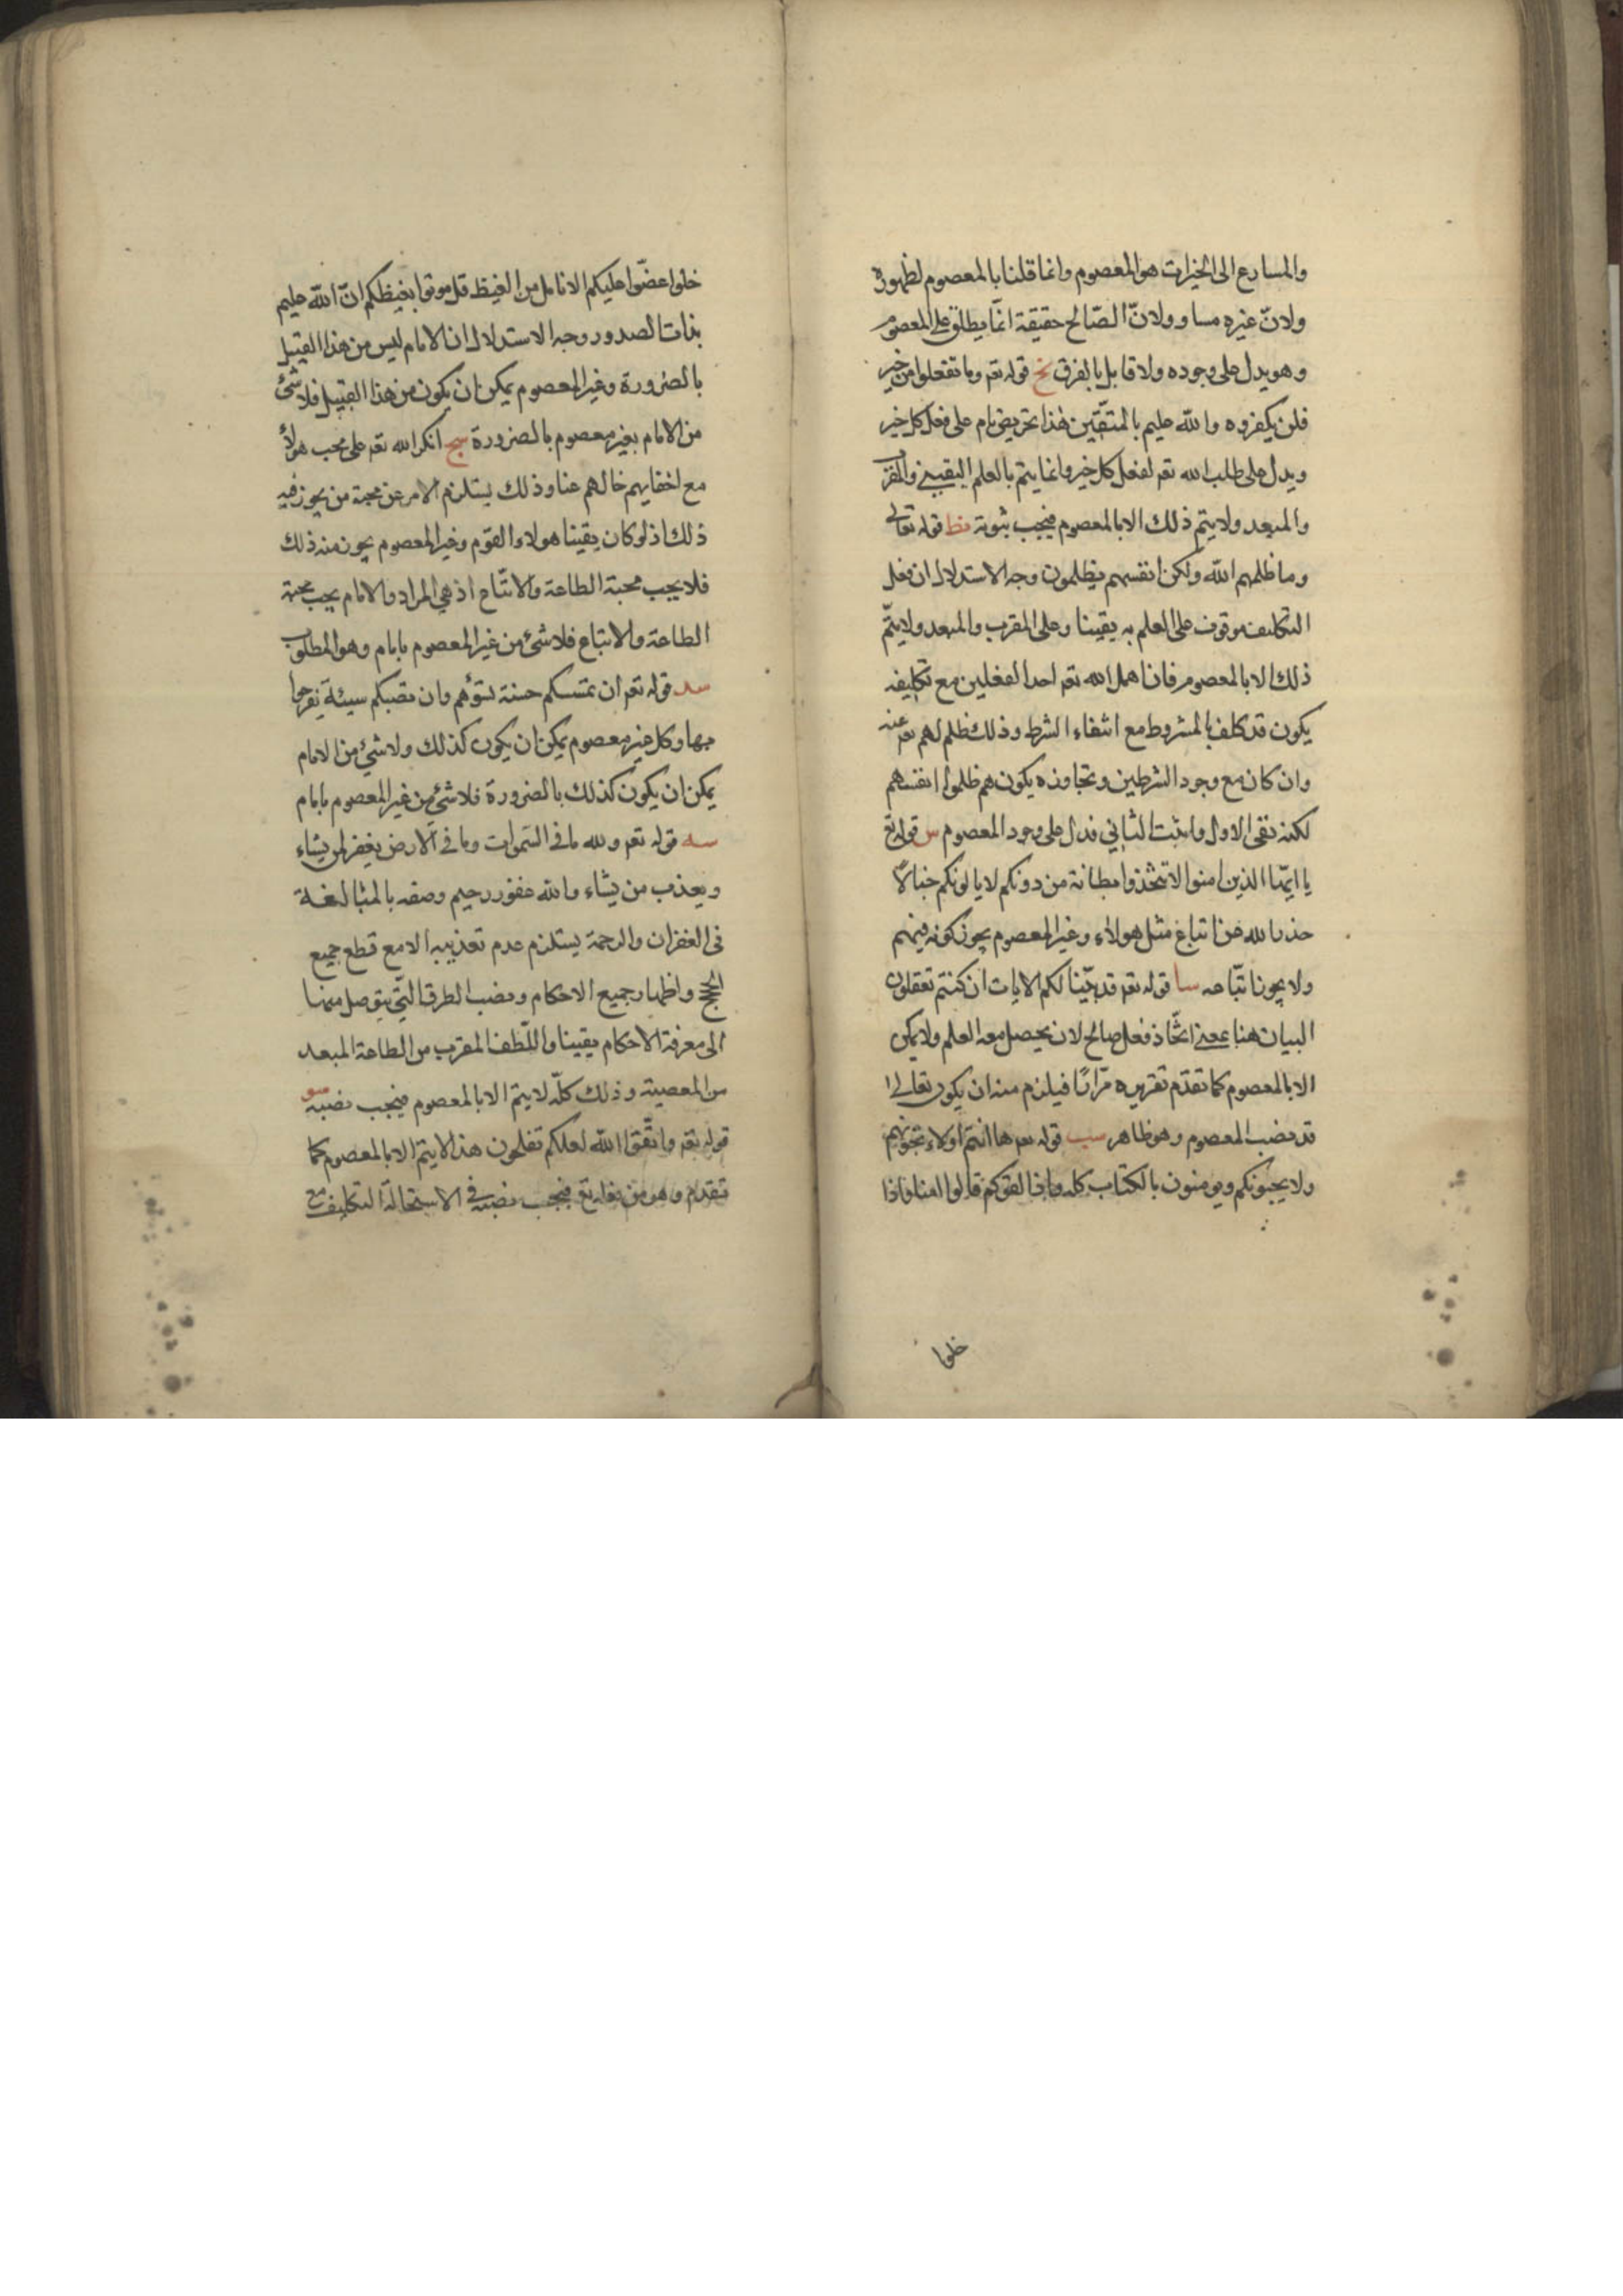 والمسارع الى الخيرات هو المعصوم وانما قلنا بالمعصوم لظهوره
ولانّ غيره مساو ولانّ الصّالح حقيقة انّما يطلق على المعصوم
وهو يدل على وجوده ولا قايل بالفرق نح قوله تعـ وما تفعلوا من خير
فلن يكفروه والله عليم بالمتّقين هذا تحريض تام على فعل كل خير
ويدل على طلب الله تعـ لفعل كل خير وانما يتم بالعلم اليقيني والمقرب
والمبعد ولا يتم ذلك الا بالمعصوم فيجب ثبوته نط قوله تعالى
وما ظلمهم الله ولكن انفسهم يظلمون وجه الاستدلال ان فعل
التكليف موقوف على العلم به يقينا وعلى المقرب والمبعد ولا يتمّ
ذلك الا بالمعصوم فان اهمل الله تعـ احد الفعلين مع تكليفه
يكون قد كلف بالمشروط مع انتفاء الشرط وذلك ظلم لهم تعـ عنه
وان كان مع وجود الشرطين وتجاوزه يكون هم ظلموا انفسهم
لكنه نفى الاول واثبت الثاني فدل على وجود المعصوم س قوله تع
يا ايّها الذين امنوا لا تتخذوا بطانة من دونكم لا يالونكم خبالاً
حذر الله عن اتباع مثل هولاء وغير المعصوم يجوز كونه فيهم
ولا يجوز اتّباعه سا قوله تعـ قد بيّنا لكم الايات ان كنتم تعقلون
البيان هنا بمعنى اتّخاذ فعل صالح لان يحصل معه العلم ولا يمكن
الا بالمعصوم كما تقدّم تقريره مرّارًا فيلزم منه ان يكون تعالى
قد نصب المعصوم وهو ظاهر سب قوله تعـ ها انتم اولاء تحبّونهم
ولا يحبّونكم ويومنون بالكتاب كله واذا لقوكم قالوا امنا واذا
خلوا
خلوا عضّوا عليكم الانامل من الغيظ قل موتوا بغيظكم انّ الله عليم
بذات الصدور وجه الاستدلال ان الامام ليس من هذا القبيل
بالضرورة وغير المعصوم يمكن ان يكون من هذا القبيل فلا شئ
من الامام بغير معصوم بالضرورة سج انكر الله تعـ على محب هولاء
مع اخفايهم حالهم عنا وذلك يستلزم الامر عن محبة من يجوز فيه
ذلك اذ لو كان يقينا هولاء القوم وغير المعصوم يجوز منه ذلك
فلا يجب محبة الطاعة والاتّباع اذ هي المراد والامام يجب محبة
الطاعة والاتباع فلا شئ من غير المعصوم بامام وهو المطلوب
سد قوله تعـ ان تمسسكم حسنة تسؤهم وان تصبكم سيئة يفرحوا
بها وكل غير معصوم يمكن ان يكون كذلك ولا شئ من الامام
يمكن ان يكون كذلك بالضرورة فلا شئ من غير المعصوم بامام
سه قوله تعـ ولله ما في السّموات وما في الارض يغفر لمن يشاء
ويعذب من يشاء والله غفور رحيم وصفه بالمبالغة
في الغفران والرحمة يستلزم عدم تعذيبه الا مع قطع جميع
الحجج واظهار جميع الاحكام ونصب الطرق التّي يتوصل منها
الى معرفة الاحكام يقينا واللّطف المقرب من الطاعة المبعد
من المعصية وذلك كلّه لا يتم الا بالمعصوم فيجب نصبه سو
قوله تعـ واتّقوا الله لعلكم تفلحون هذا لا يتم الا بالمعصوم كما
تقدم وهو من فعله تع فيجب نصبه في الاستحالة التكليف مع